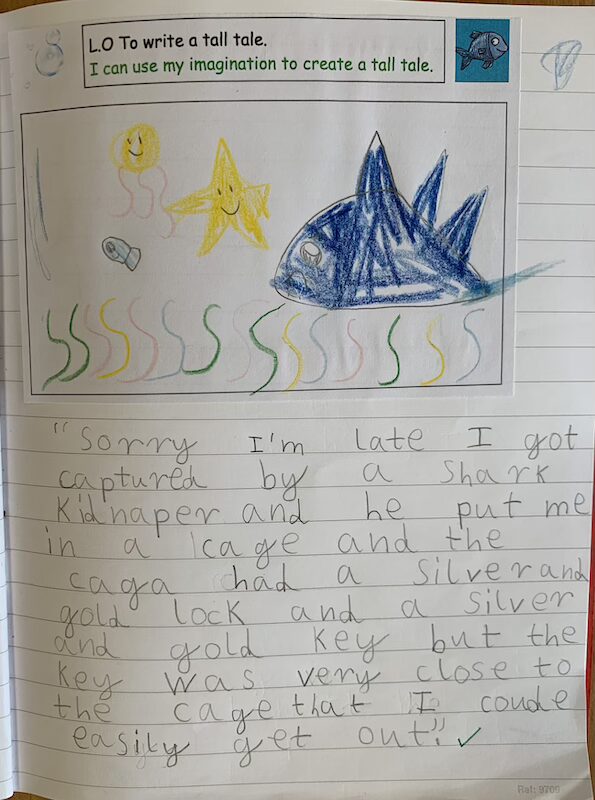 L.O To write a tall tale.
I can use my imagination to create a tall tale.
"Sorry I'm late I got
captured by a shark
kidnaper and he put me
in a cage and the
caga had a silver and
gold lock and a silver
and gold key but the
key was very close to
the cage that I coude
easily get out".
Ref: 9769